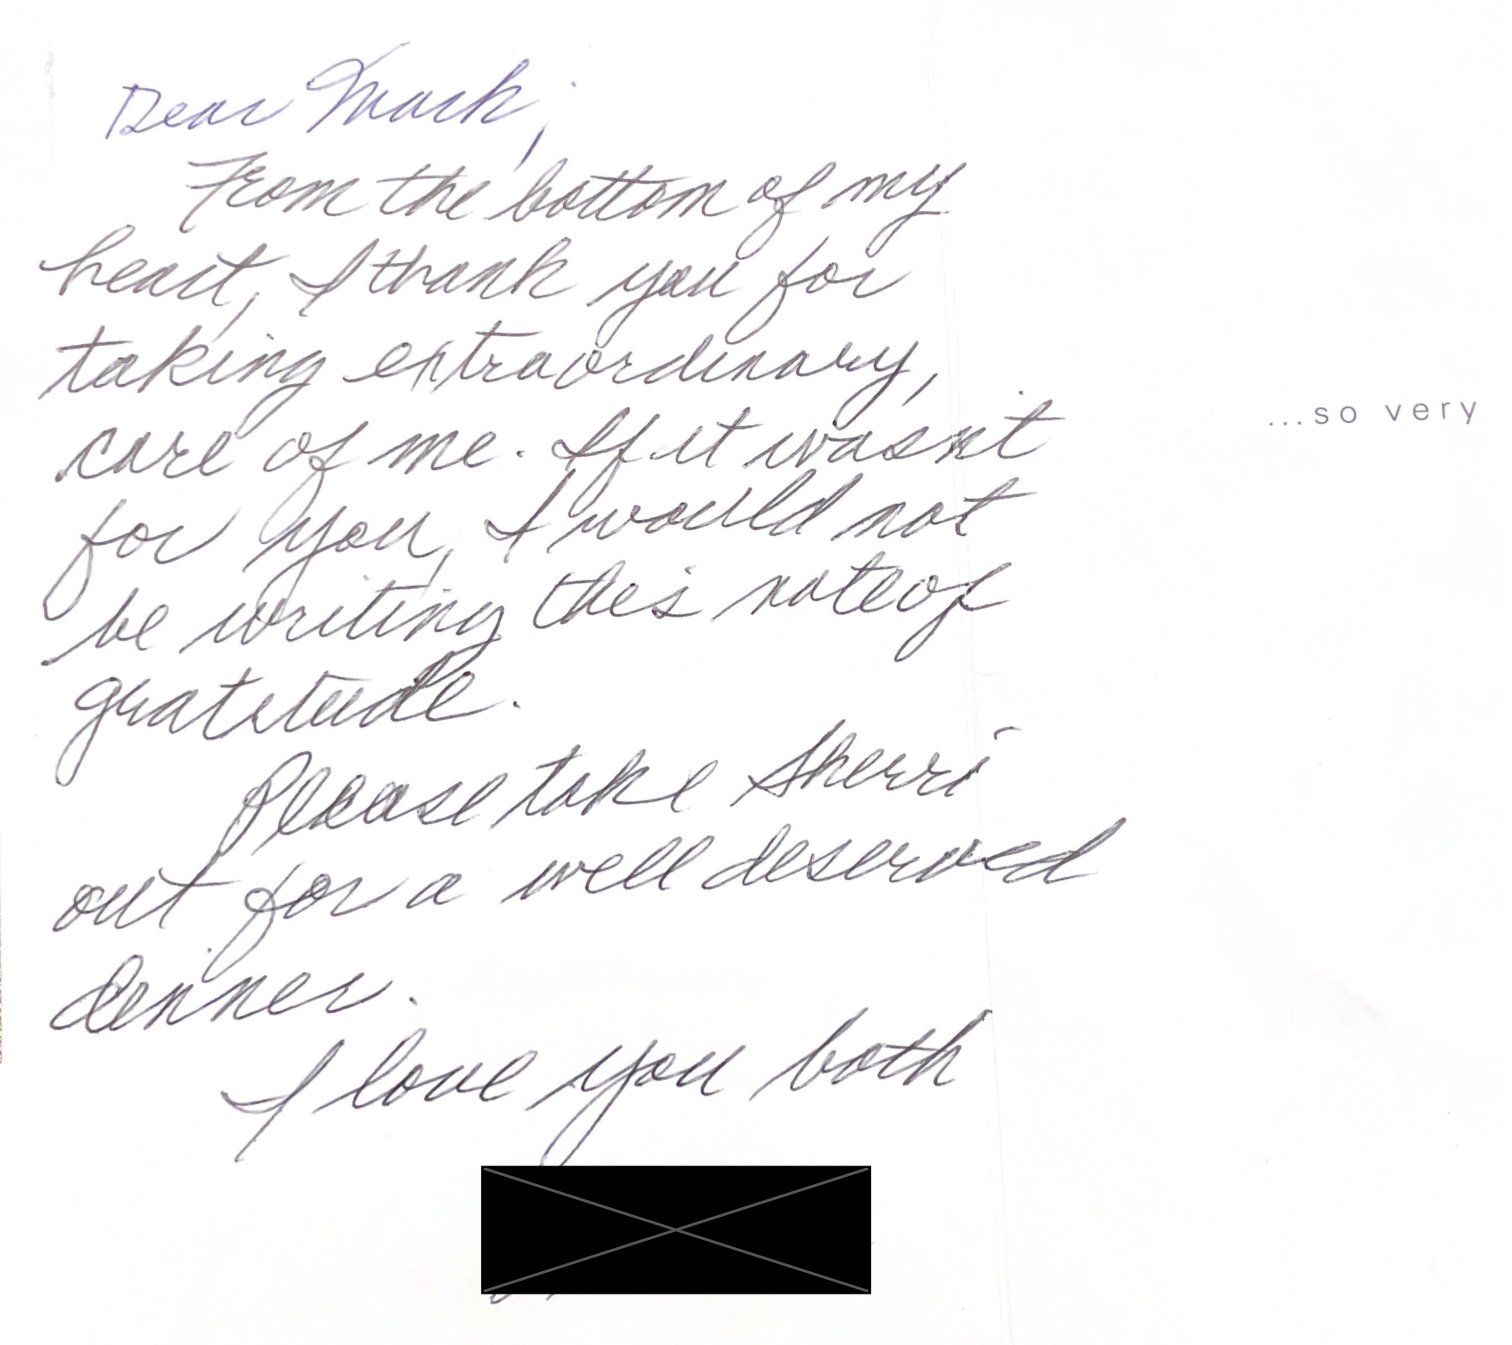 Dear Mark,
From the bottom of my
heart, I thank you for
taking extraordinary,
care of me. If it wasn't
for you, I would not
be writing this note of
gratitude.
Please take Sherri
out for a well deserved
dinner.
I love you both
...so very